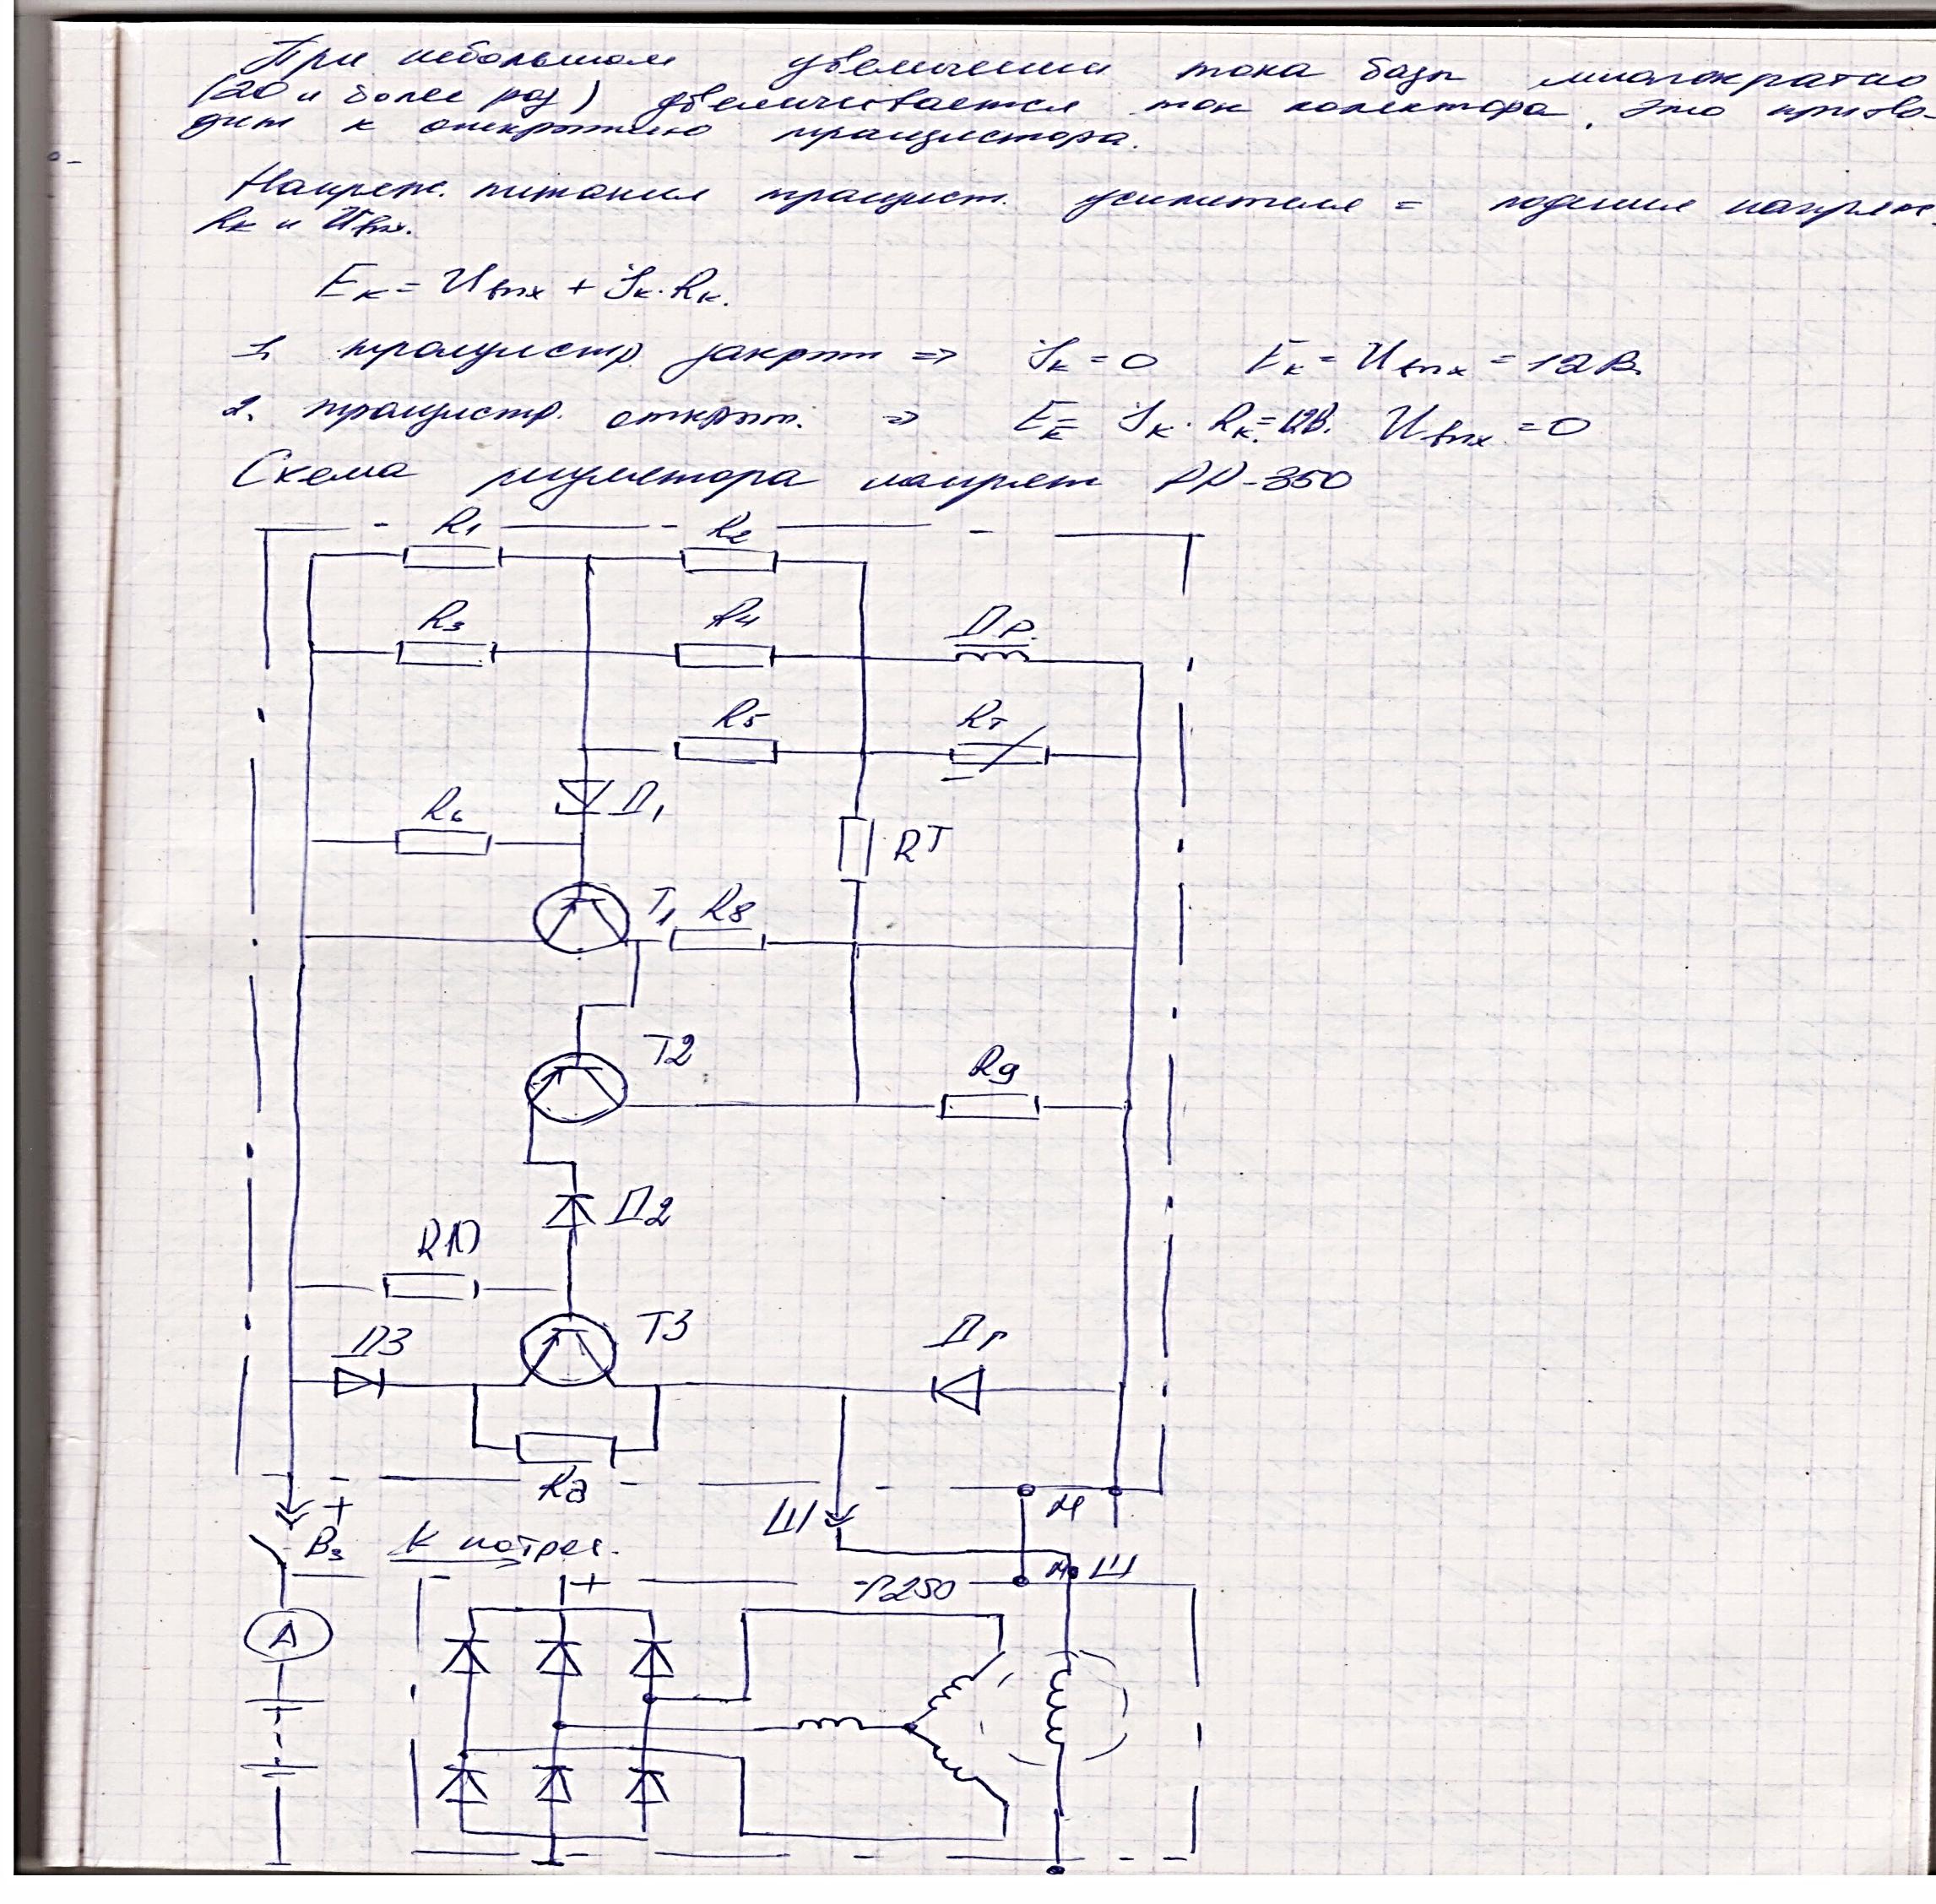 При небольшом увеличении тока базы многократно
(20 и более раз) увеличивается ток колектора. Это приво-
дит к открытию транцистора.
Напреж. питания транцист. усилителя = подения напряж.
Rк и Uвых.
Eк = Uвых + Iк · Rк.
1. транцистр. закрыт => Iк = 0 Eк = Uвых = 12 В.
2. транцистр. открыт. => Eк = Iк · Rк. = 12В. Uвых = 0
Схема регулятора напряж РР-350
R1 R2
R3 R4 Др.
R5 Rт
R6 Д1
RТ
Т1 R8
Т2
R9
Д2
R10
Т3
Д3 Дг
+ Ш М
В3 К потреб.
М Ш
+ Г250
А